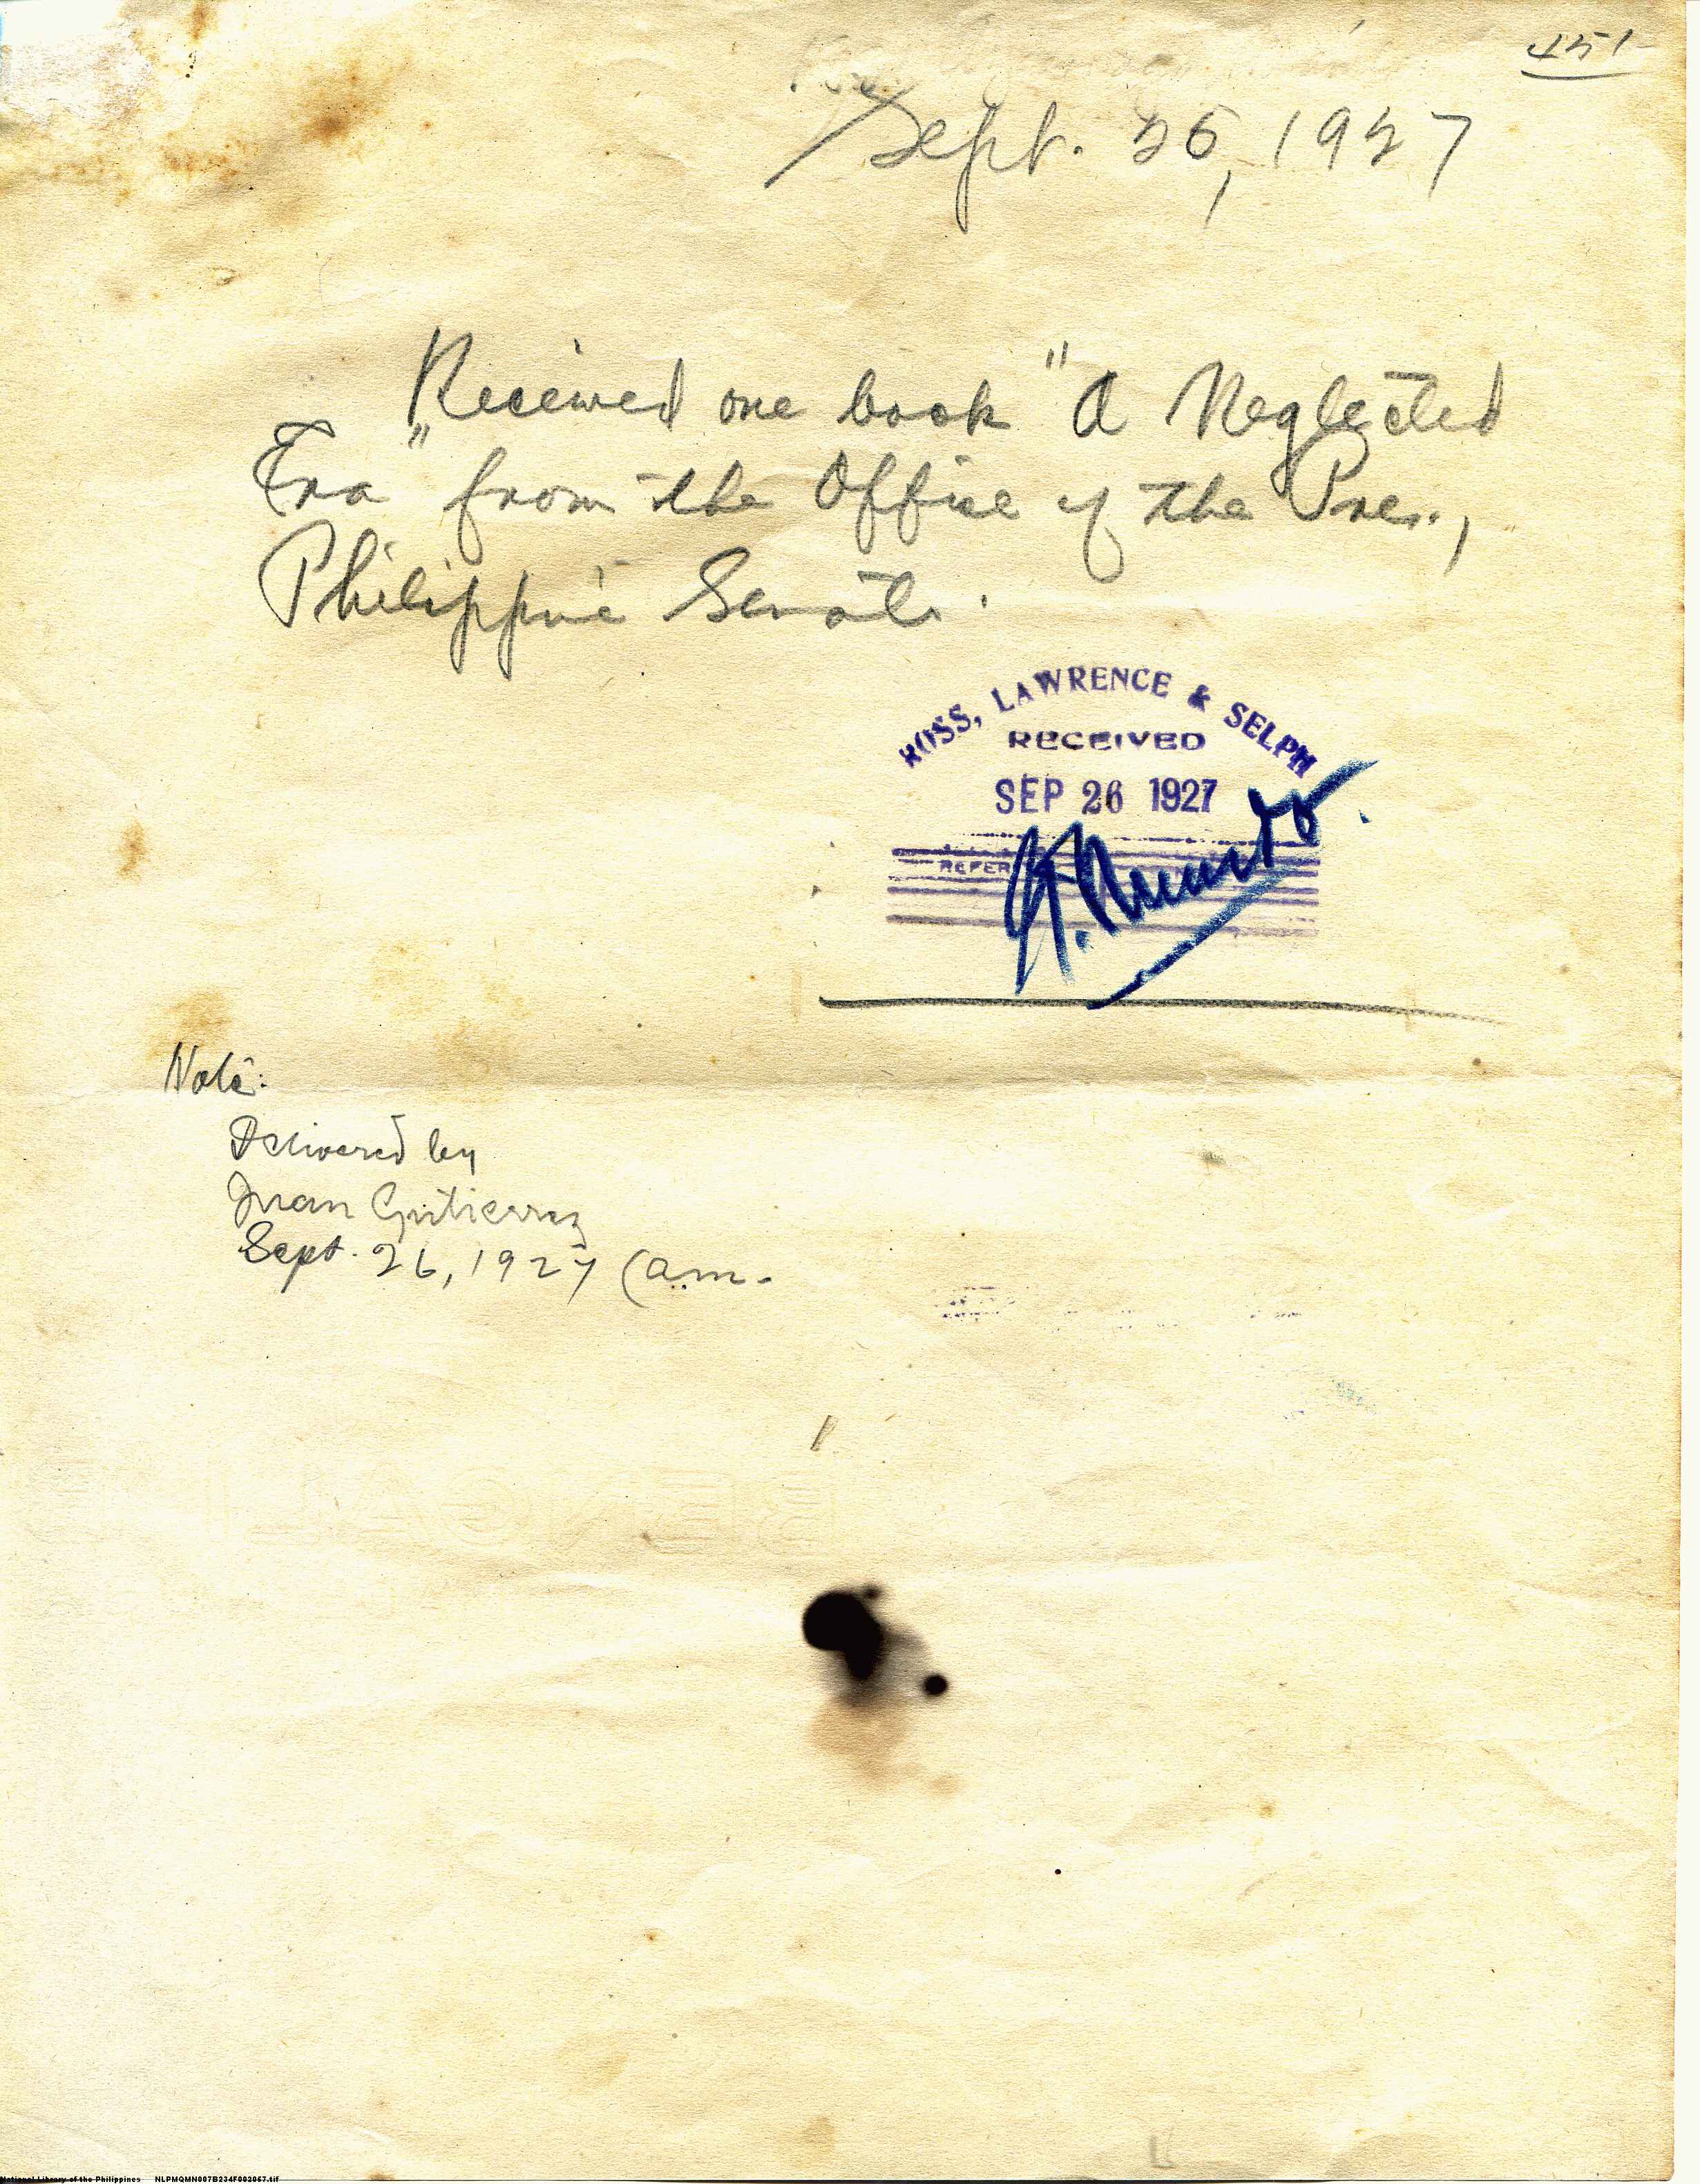 451
Sept. 26, 1927
Received one book "A Neglected
Era" from the Office of the Pres.,
Philippine Senate.
ROSS, LAWRENCE & SELPH
RECEIVED
SEP 26 1927
REFER
Note:
Delivered by
Juan Gutierrez
Sept. 26, 1927 (am.
National Library of the Philippines NLPMQMN007B234F002067.tif